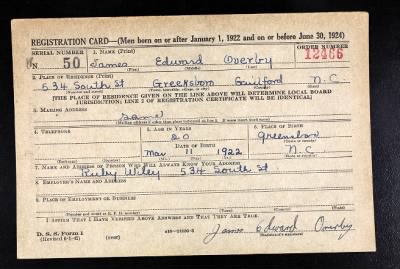 REGISTRATION CARD—(Men born on or after January 1, 1922 and on or before June 30, 1924)
SERIAL NUMBER 1. NAME (Print) ORDER NUMBER
N 50 James Edward Overby 12466
(First) (Middle) (Last)
2. PLACE OF RESIDENCE (Print)
534 South St Greensboro Guilford N.C.
(Number and street) (Town) (County) (State)
[THE PLACE OF RESIDENCE GIVEN ON THE LINE ABOVE WILL DETERMINE LOCAL BOARD
JURISDICTION; LINE 2 OF REGISTRATION CERTIFICATE WILL BE IDENTICAL]
3. MAILING ADDRESS
Same
[Mailing address if other than place indicated on line 2. If same insert word same]
4. TELEPHONE 5. AGE IN YEARS 6. PLACE OF BIRTH
20 Greensboro
DATE OF BIRTH
Mar 11 1922 N.C.
(Mo.) (Day) (Yr.)
7. NAME AND ADDRESS OF PERSON WHO WILL ALWAYS KNOW YOUR ADDRESS
Ruby Wiley 534 South St
8. EMPLOYER'S NAME AND ADDRESS
9. PLACE OF EMPLOYMENT OR BUSINESS
(Number and street or R. F. D. number) (Town) (County) (State)
I AFFIRM THAT I HAVE VERIFIED ABOVE ANSWERS AND THAT THEY ARE TRUE.
D. S. S. Form 1 James Edward Overby
(Registrant's signature)